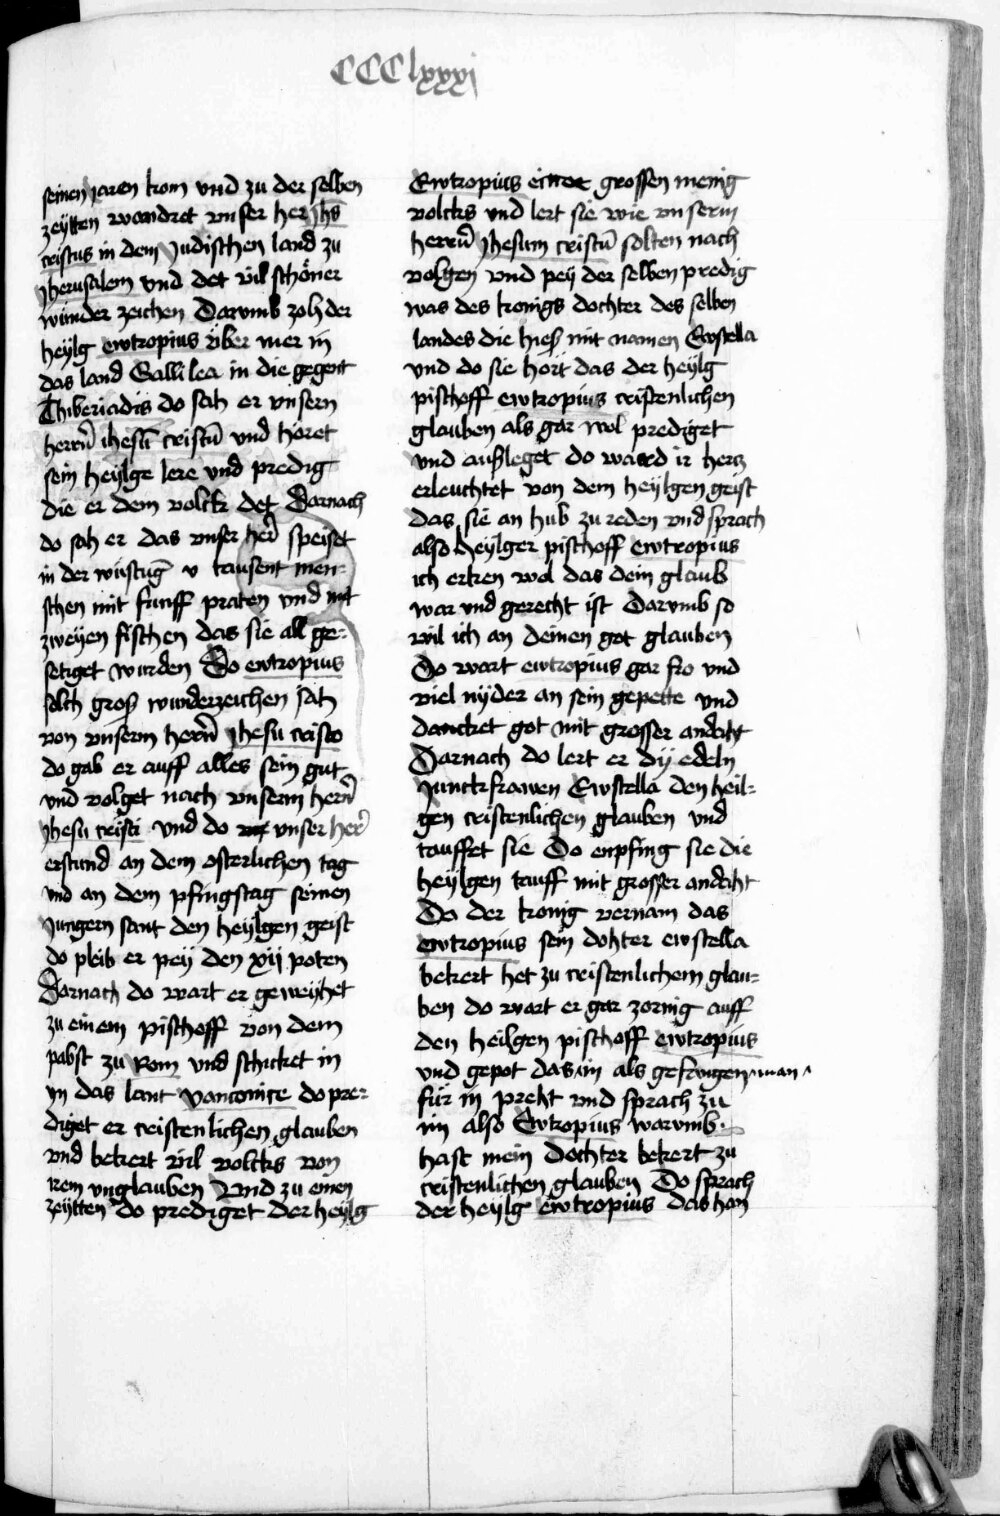 CCClxxxj
seinen jaren kom vnd zu der selben
zeytten wandret vnser her jhs
cristus in dem Judischen land zu
Jherusalem vnd det vil schöner
wunder zeichen Darvmb zoh der
heylg ewtropius vber mer in
das land Gallilea in die gegent
Thiberiadis do sah er vnsern
herrn̄ ihesū cristū vnd horet
sein heylge lere vnd predig
die er dem volck det Darnach
do sah er das vnser her̄ speiset
in der wüstūg v tausent men=
schen mit funff praten vnd mit
zweyen fischen das sie all ge=
setiget wurden Do ewtropius
solch groß wunderzeichen sah
von vnserm herrn̄ Jhesu cristo
do gab er auff alles sein gut
vnd volget nach vnserm hern̄
Jhesu cristi vnd do vnser her̄
erstund an dem osterlichen tag
vnd an dem pfingstag seinen
Jungern sant den heylgen geist
do pleib er pey den xij poten
Darnach do wart er geweyhet
zu einem pischoff von dem
pabst zu Rom vnd schicket in
yn das lant vanconice do pre=
diget er cristenlichen glauben
vnd bekert vil volcks von
irem vnglauben Vnd zu einen
zeytten do prediget der heylg
Ewtropius einer grossen menig
volcks vnd lert sie wie vnserm
herrn̄ Jhesum cristū solten nach
volgen vnd pey der selben predig
was des konigs dochter des selben
landes die hieß mit namen Ewstella
vnd do sie hört das der heylg
pischoff ewtropius cristenlichen
glauben als gar wol prediget
vnd außleget do ward ir hercz
erleuchtet von dem heylgen geist
das sie an hub zu reden vnd sprach
also heylger pischoff ewtropius
ich erken wol das dein glaub
war vnd gerecht ist Darvmb so
wil ich an deinen got glauben
Do wart ewtropius gar fro vnd
viel nyder an sein gepette vnd
dancket got mit grosser andacht
Darnach do lert er dy edeln
Junckfrawen Ewstella den heil=
gen cristenlichen glauben vnd
tauffet sie Do enpfing sie die
heylgen tauff mit grosser andacht
Da der konig vernam das
ewtropius sein dohter ewstella
bekert het zu cristenlichem glau=
ben do wart er gar zornig auff
den heilgen pischoff ewtropius
vnd gepot das im als gefangen man
für in preht vnd sprach zu
im also Ewtropius warvmb
hast mein dochter bekert zu
cristenlichen glauben Do sprach
der heylg ewtropius das han